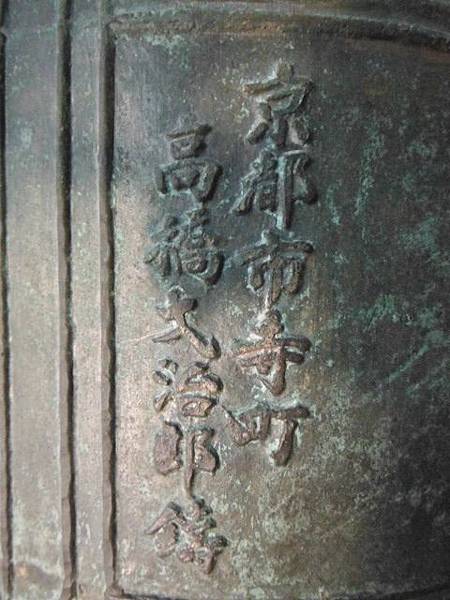 京都市寺町
高橋大治郎鋳